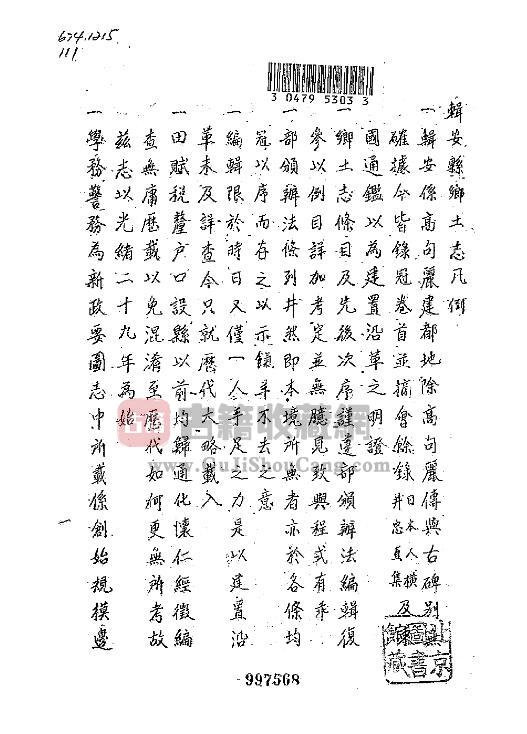 674.1215
111
3 0479 5303 3
輯安縣鄉土志凡例
一輯安係高句麗建都地除高句麗傳與古碑別無
確據今皆錄冠卷首並摘會餘錄日本人橫井忠直集及
國通鑑以為建置沿革之明證
一鄉土志條目及先後次序謹遵部頒辦法編輯復
參以例目詳加考定並無臆見致與程式有乖
一部頒辦法條列井然即本境所無者亦於各條均
冠以序而存之以示餼羊不去之意
一編輯限於時日又僅一人手足之力是以建置沿
革未及詳查今只就歷代大略載入
一田賦稅釐戶口設縣以前均歸通化懷仁經徵編
查無庸歷載以免混淆至歷代如何更無所考故
茲志以光緒二十九年為始
一學務警務為新政要圖志中所載係創始規模邊
古籍收藏網
www.GuJiShouCang.com
997568